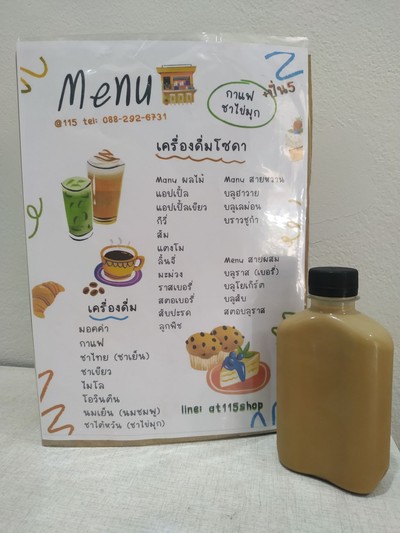 Menu
@115 tel: 088-292-6731
กาแฟ
ชาไข่มุก
เครื่องดื่มโซดา
Manu ผลไม้
แอปเปิ้ล
แอปเปิ้ลเขียว
กีวี่
ส้ม
แตงโม
ลิ้นจี่
มะม่วง
ราสเบอรี่
สตอเบอรี่
สับปะรด
ลูกพีช
Manu สายหวาน
บลูฮาวาย
บลูเลม่อน
บราวชูก้า
Menu สายผสม
บลูราส (เบอรี่)
บลูโยเกิร์ต
บลูสับ
สตอบลูราส
เครื่องดื่ม
มอคค่า
กาแฟ
ชาไทย (ชาเย็น)
ชาเขียว
ไมโล
โอวันติน
นมเย็น (นมชมพู)
ชาไต้หวัน (ชาไข่มุก)
line: at115shop